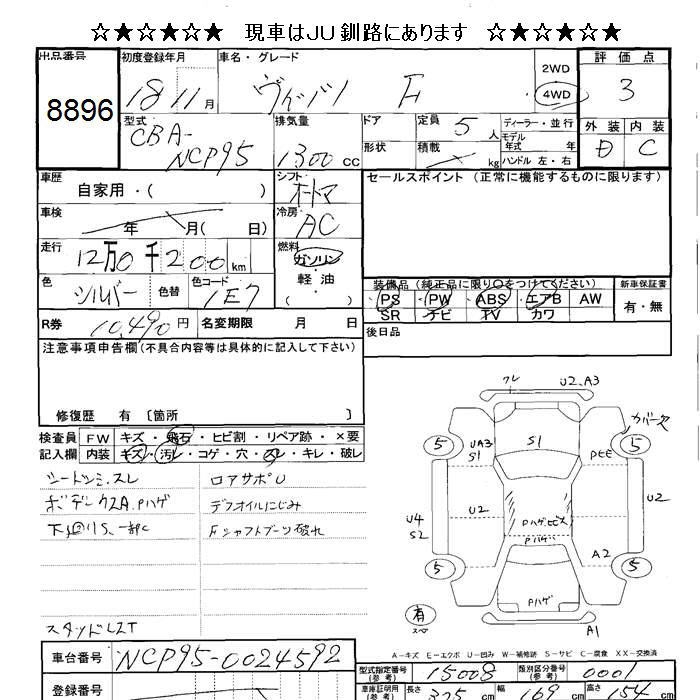 ☆★☆★☆★ 現車はJU釧路にあります ☆★☆★☆★
出品番号 初度登録年月 車名・グレード 評価点
8896 18 11月 ヴィッツ F 2WD 4WD 3
型式 排気量 ドア 定員 ディーラー・並行 外装 内装
CBA-NCP95 1300cc 5人 モデル年式 年 D C
形状 積載 kg ハンドル 左・右
車歴 シフト セールスポイント (正常に機能するものに限ります)
自家用・( ) オートマ
車検 冷房
年 月( 日) AC
走行 燃料
12万0千200km ガソリン
軽油
色 色替 色コード ( )
シルバー 1E7
装備品 (純正品に限り○をつけてください) 新車保証書
PS PW ABS エアB AW 有・無
SR ナビ TV カワ
R券 10,490円 名変期限 月 日
後日品
注意事項申告欄(不具合内容等は具体的に記入して下さい)
修復歴 有 〔箇所 〕
検査員記入欄 FW キズ・飛石・ヒビ割・リペア跡・×要
内装 キズ・汚レ・コゲ・穴・スレ・キレ・破レ
シートシミ.スレ ロアサポU
ボデー クスA.Pハゲ デフオイルにじみ
下廻りS、一部C Fシャフトブーツ破れ
スタッドレスT
ワレ U2、A3
カバー欠
5 UA3 S1 S1 5
U4 S2 U2 U2
PハゲヒビX
Pハゲ
5 A2 5
Pハゲ
有 A1
A-キズ E-エクボ U-凹み W-補修跡 S-サビ C-腐食 XX-交換済
車台番号 NCP95-0024592
型式指定番号(参考) 15008 類別区分番号(参考) 0001
登録番号
車庫証明用(参考) 長さ 375cm 幅 169cm 高さ 154cm